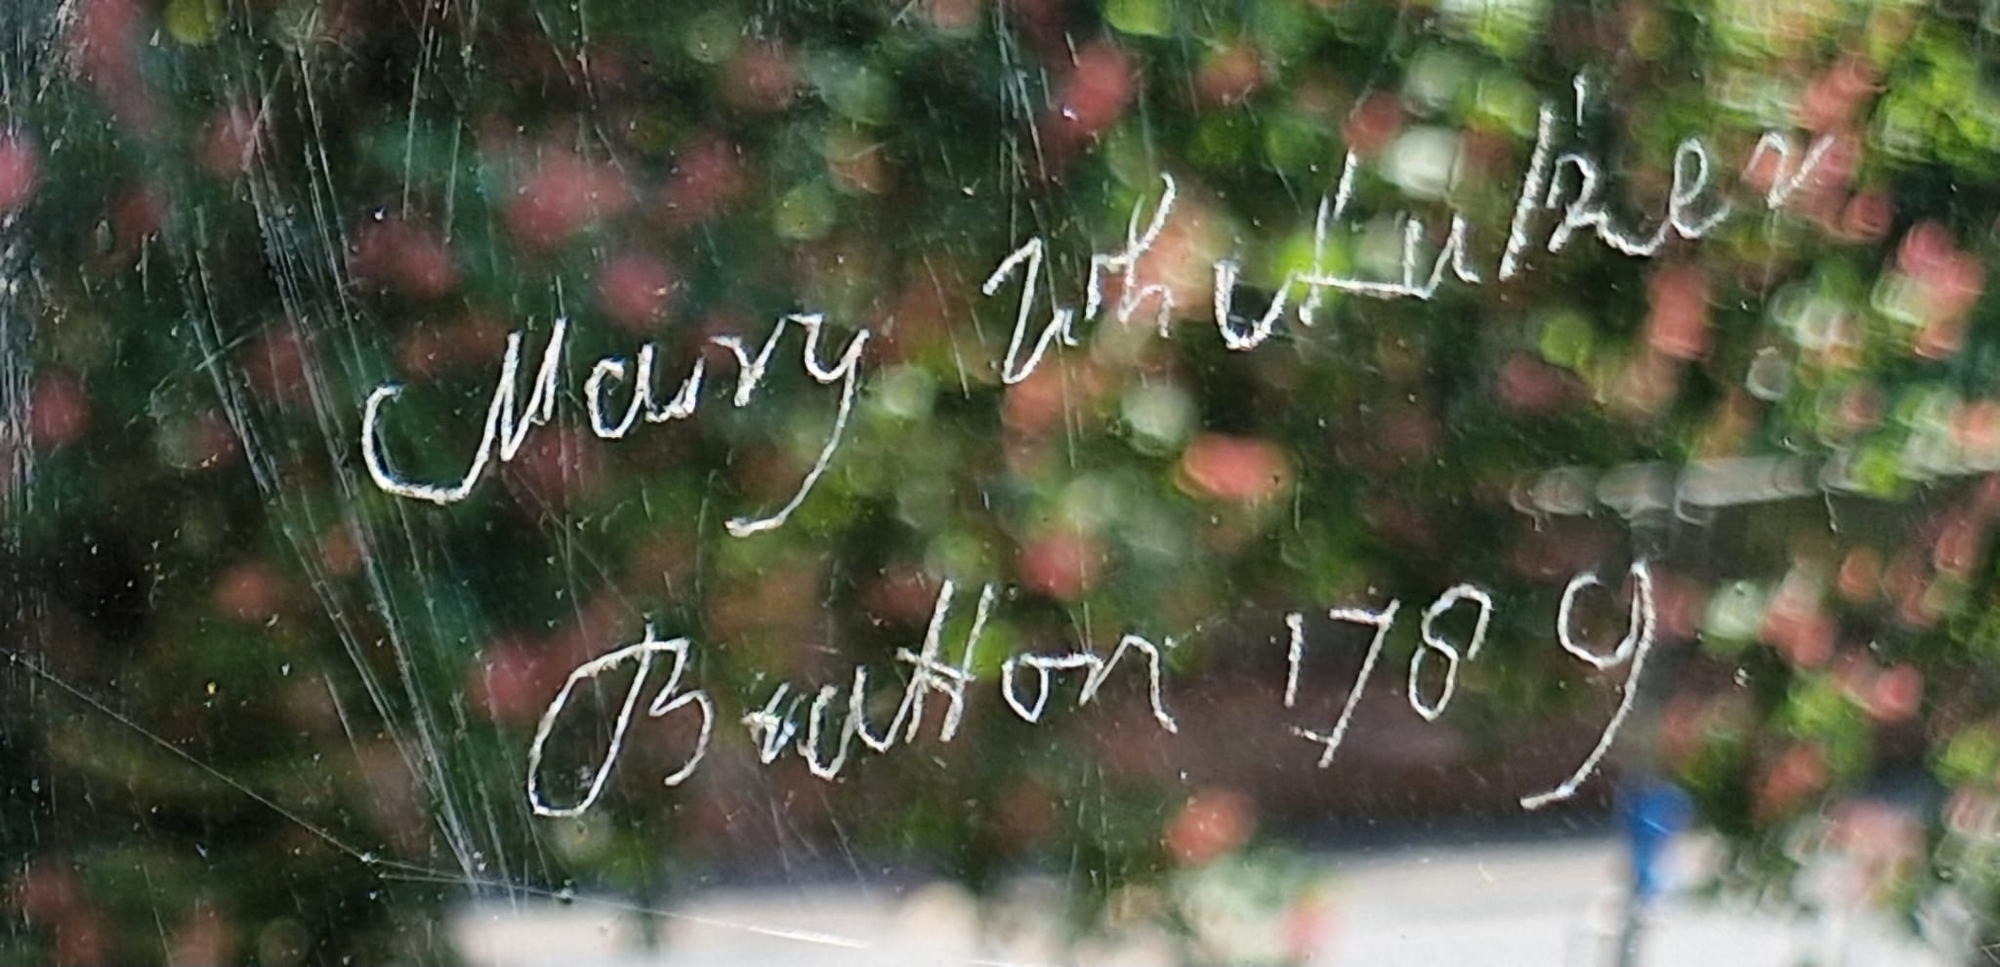 Mary Whitaker
Bratton 1789